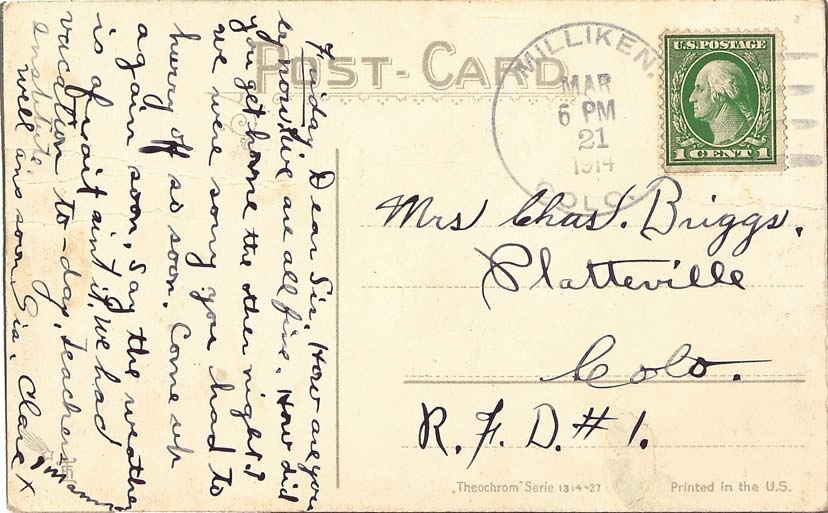 POST-CARD
MILLIKEN.
MAR
6 PM
21
1914
COLO.
U.S. POSTAGE
1 CENT 1
Friday Dear Sis, How are you
by now. We are all fine. How did
you get home the other night?
we were sorry you had to
hurry off so soon. Come up
again soon. Say the weather
is q fruit ain't it. We had
vacation to-day, teachers
Institute.
well ans soon, Sis, Clare X
Mrs Chas. Briggs.
Platteville
Colo.
R.F.D.# 1.
„Theochrom" Serie 1314-27
Printed in the U.S.